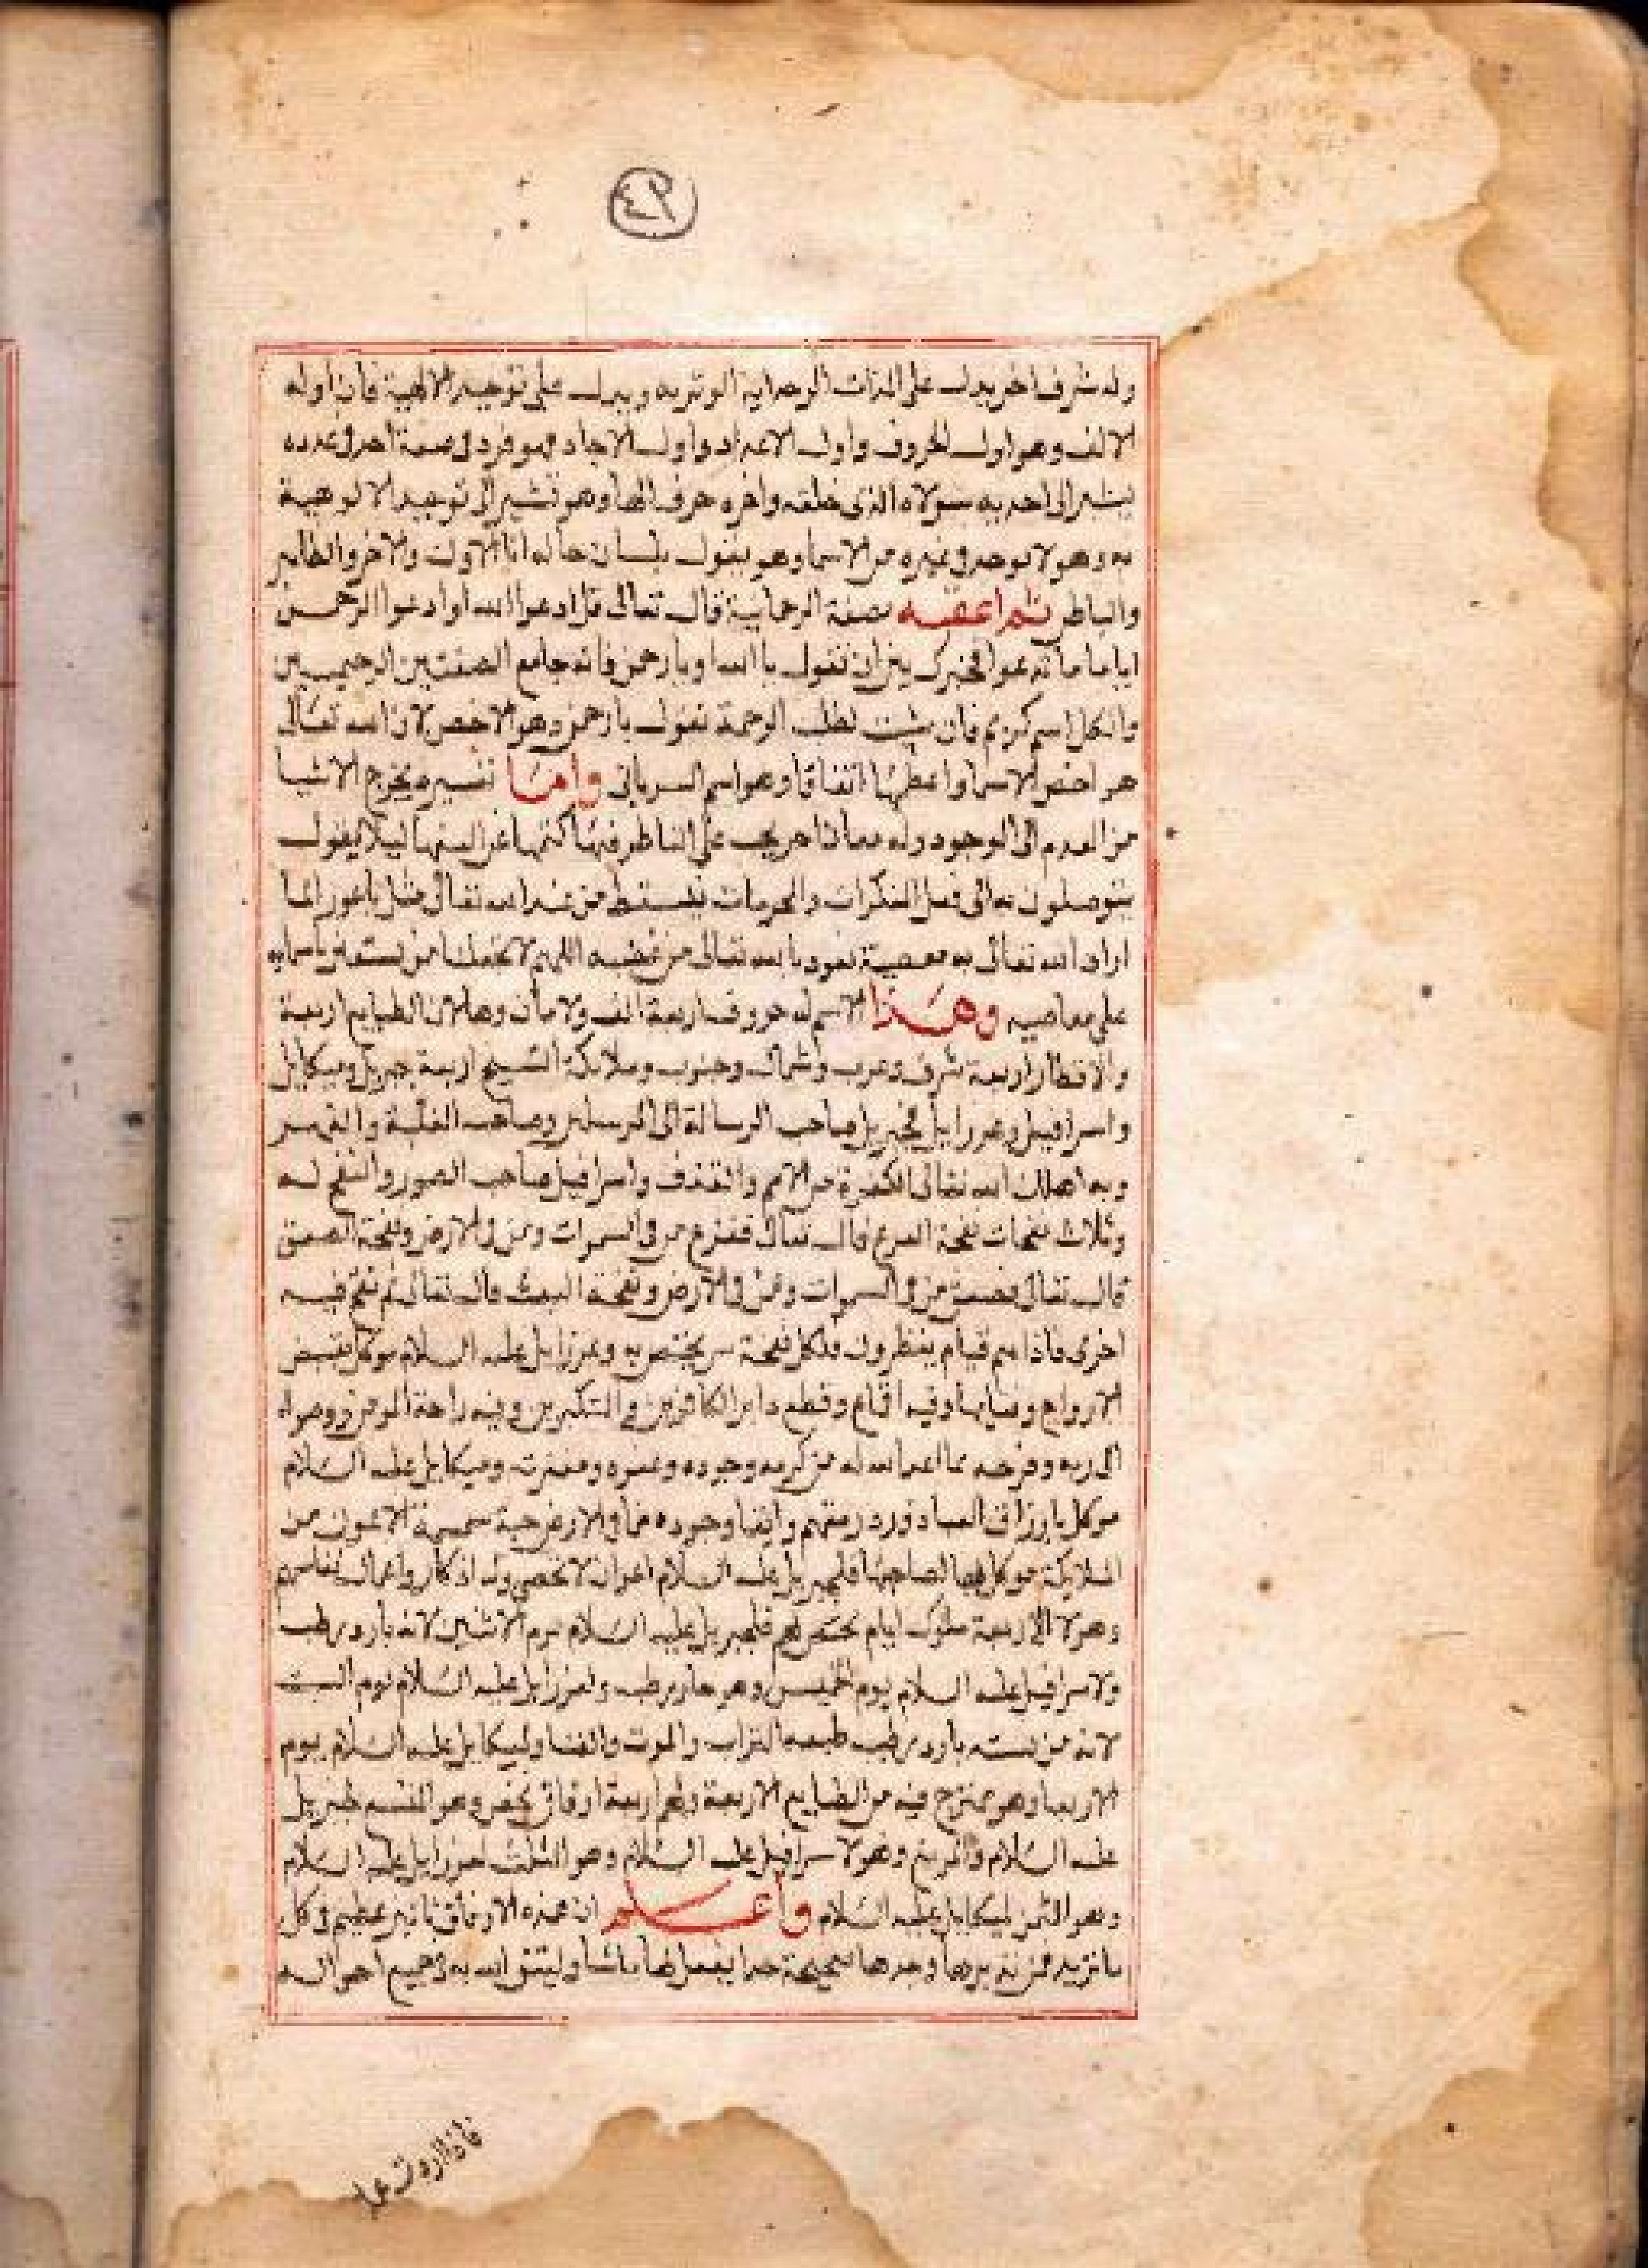 ٩٤
وله شرف اخر يدل على الذات الوحدانية الوترية ويدل على توحيد الالهية فان اوله
الالف وهو اول الحروف واول الاعداد واول الاحاد فهو فرد في صمة احد في عدده
يشير الى احدية مولاه الذي خلقه واخره حرف الها وهو تشير الى توحيد الالوهية
به وهو لا يوجد في غيره من الاسما وهو يقول بلسان حاله انا الاول والاخر والظاهر
والباطن ثم اعقبه بصفة الرحمانية قال تعالى قل ادعوا الله اوادعوا الرحمن
اياما ما تدعوا فخيرك بين ان تقول يا الله او يا رحمن فانه جامع الصفتين الرحيميتين
وا لكل اسم كريم فان شيت تطلب الرحمة تقول يا رحمن وهو الاخص لان الله تعالى
هو اخص الاسما واعظمها اتفاقا وهو اسم السرياني واما تفسيره يخرج الاشيا
من العدم الى الوجود وله معاني اخر يجب على الناظر فيها كتمها عن السفها ليلا يقول
يتوصلون به الى فعل المنكرات والمحرمات فيسقط من عند الله تعالى مثل باعور لما
اراد الله تعالى به معصية نعوذ بالله تعالى من غضبه اللهم لا تجعلنا ممن يستعين باسمايه
على معاصيه وهذا الاسم له حروف اربعة الف ولامان وها لان الطبايع اربعة
والاقطار اربعة شرق وغرب وشمال وجنوب وملائكة التسبيح اربعة جبريل وميكايل
واسرافيل وعزرايل فجبريل صاحب الرسالة الى المرسلين وصاحب الغلبة والقهر
وبه اهلك الله تعالى الكفرة من الامم والقذف واسرافيل صاحب الصور والنفخ له
وثلاث نفخات نفخة الفزع قال تعالى ففزع من في السموات ومن في الارض ونفخة الصعق
قال تعالى فصعق من في السموات ومن في الارض ونفخة البعث قال تعالى ثم نفخ فيه
اخرى فاذا هم قيام ينظرون ولكل نفخة سر يختص به وعزرايل عليه السلام موكل بقبض
الارواح وفنايها وفيه اقماع وقطع دابر الكافرين والمتكبرين وفيه راحة المومن ووصوله
الى ربه وفرحه بما اعد الله له من كرمه وجوده وعفوه ومغفرته وميكايل عليه السلام
موكل بارزاق العباد ورد رزقهم وابقا وجوده فما في الارض حبة سمسمة الا عون من
الملايكة موكل بها لصاحبها فلجبريل عليه السلام اعوان لا تحصى وله اذكار واعمال تقاسمهم
وهولا الاربعة ملوك ايام تختص لهم فلجبريل عليه السلام يوم الاثنين لانه بارد رطب
ولاسرافيل عليه السلام يوم الخميس وهو حار رطب ولعزرايل عليه السلام يوم السبت
لانه من نسبته بارد رطب طبعه التراب والموت والفنا ولميكايل عليه السلام يوم
الاربعا وهو ممتزج فيه من الطبايع الاربعة ولهم اربعة اوفاق تختص وهو المثلث لجبريل
عليه السلام والمربع وهو لاسرافيل عليه السلام وهو المثلث لعزرايل عليه السلام
وهو المثمن لميكايل عليه السلام واعلم ان هذه الاوفاق تاثير عظيم في كل
ما تريد فمن تدبرها وجدها صحيحة جدا يفعل بها ما شا وليتق الله به في جميع احواله
فاذا اردت عمل